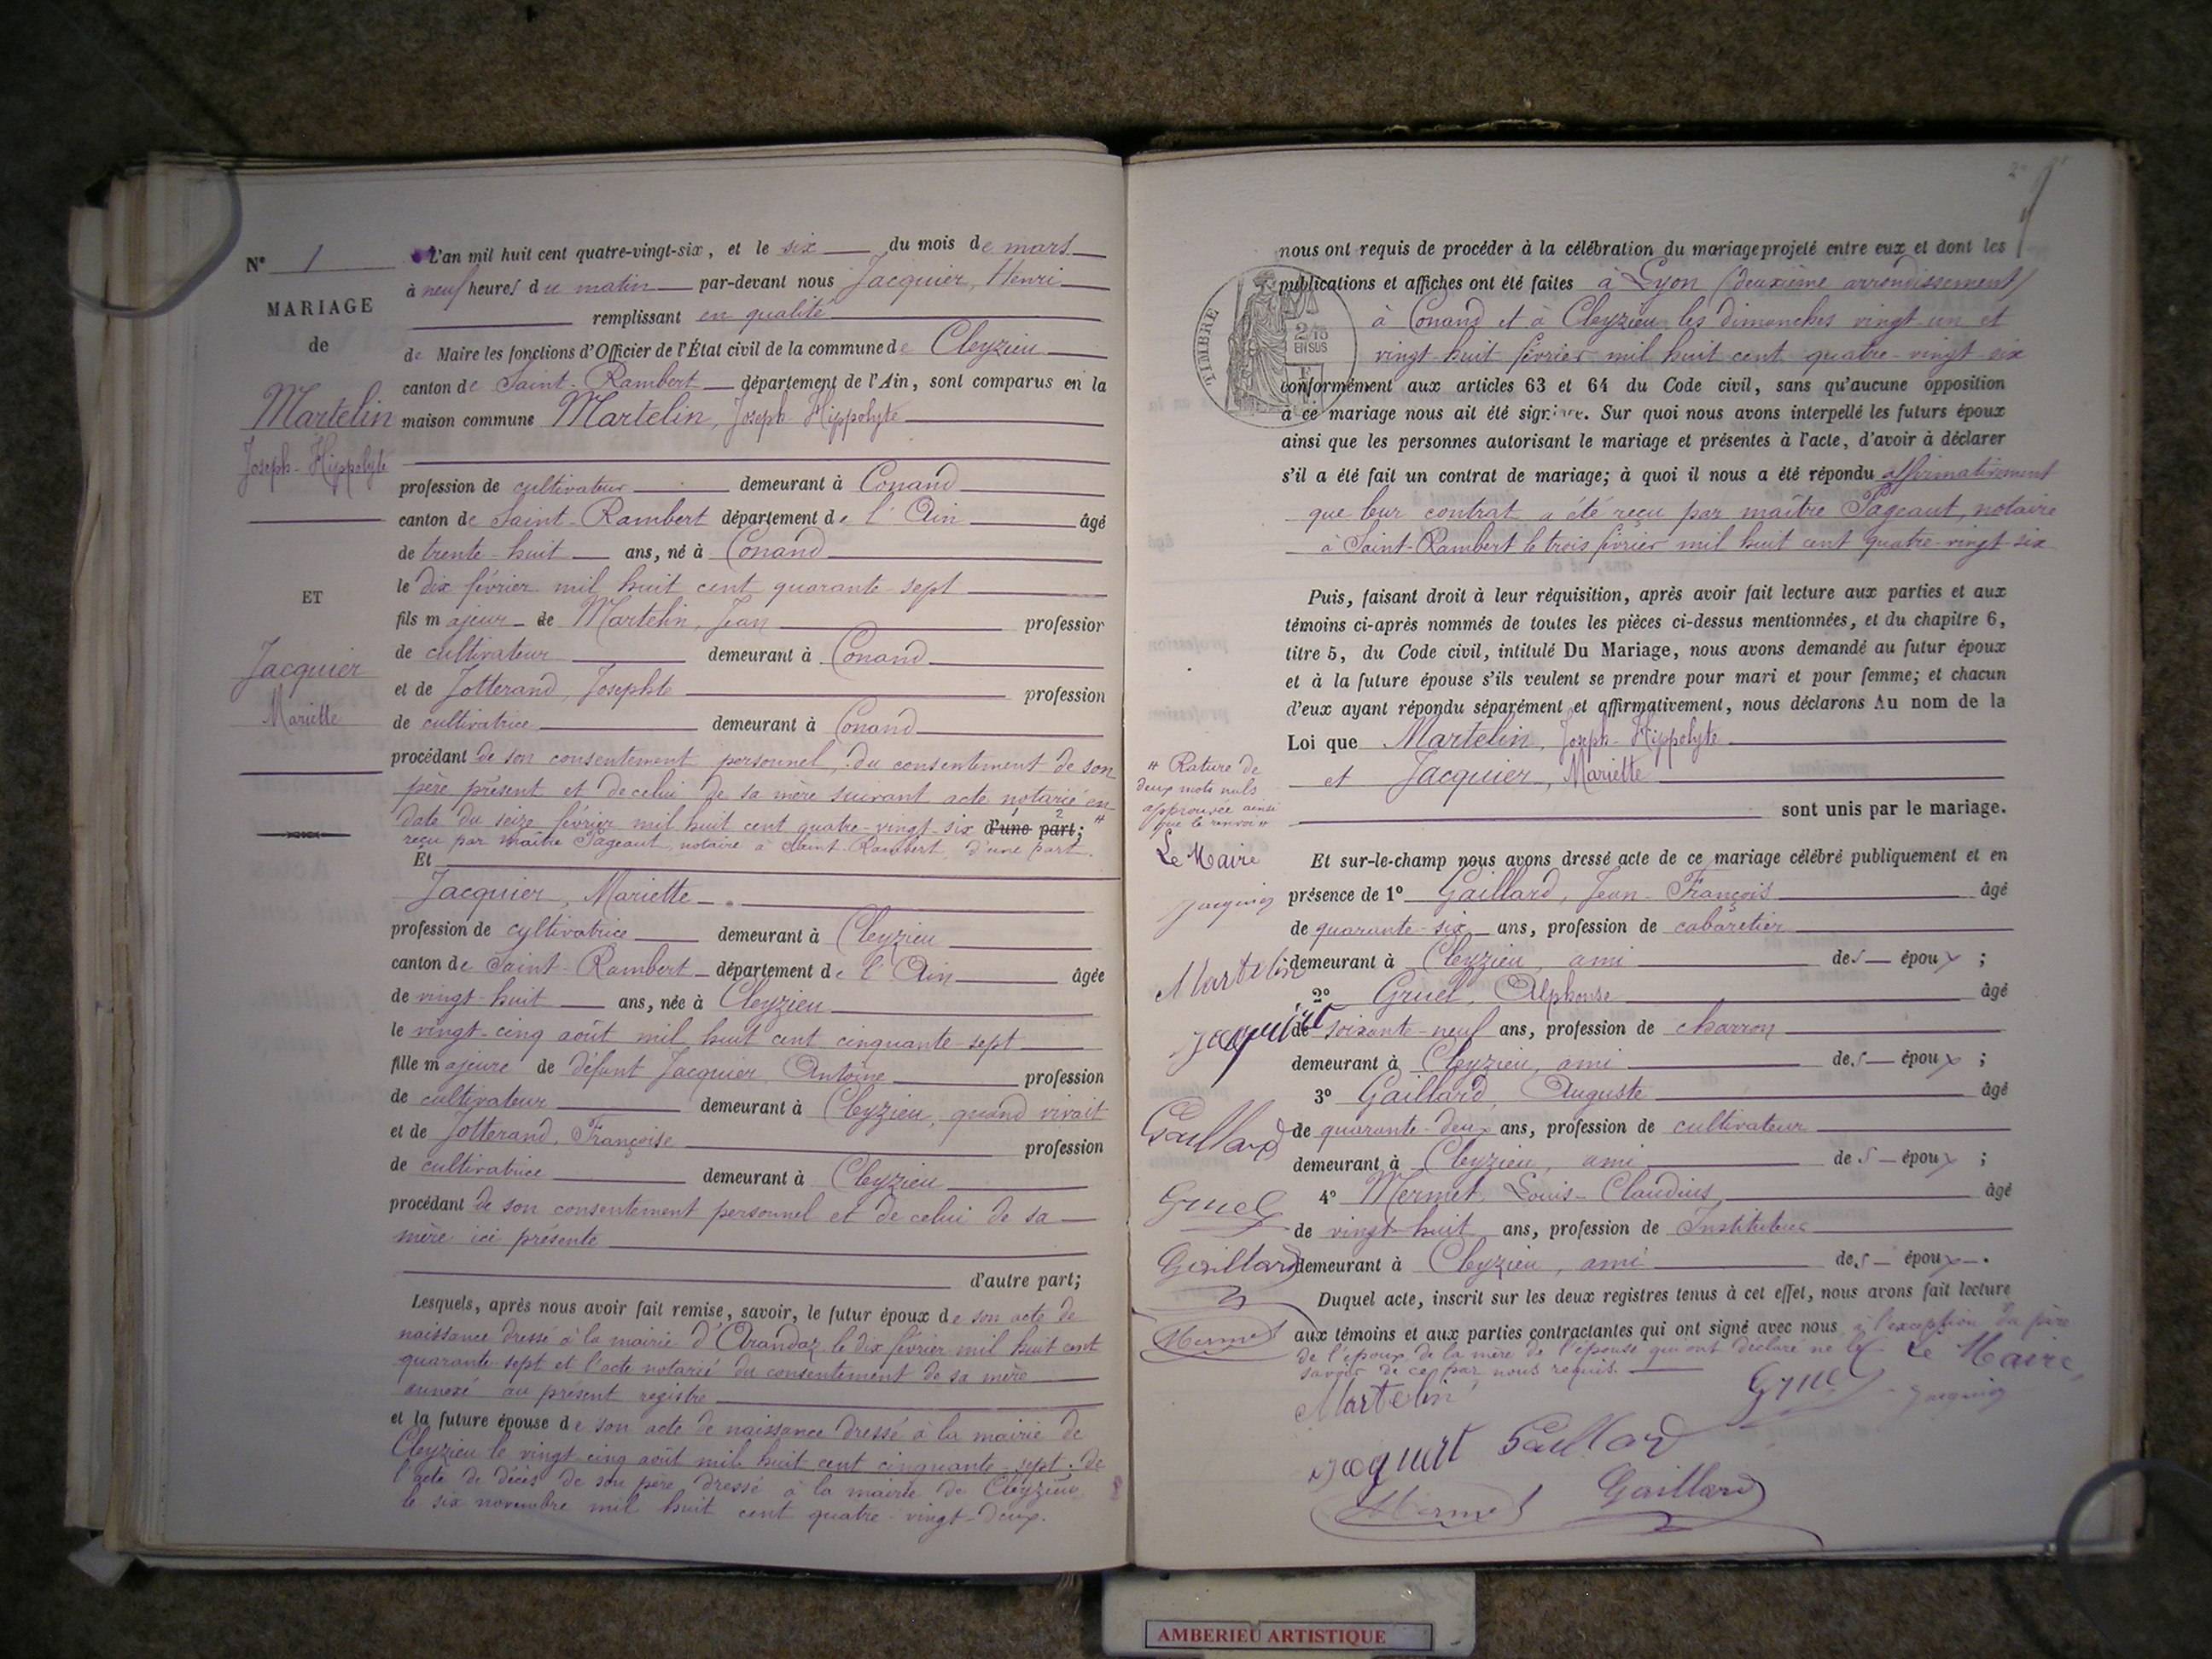 N° 1
MARIAGE
de
Martelin
Joseph-Hippolyte
ET
Jacquier
Mariette
L'an mil huit cent quatre-vingt-six, et le six du mois de mars
à neuf heures du matin par-devant nous Jacquier, Henri
remplissant en qualité
de Maire les fonctions d'Officier de l'État civil de la commune de Cleyzieu
canton de Saint-Rambert département de l'Ain, sont comparus en la
maison commune Martelin, Joseph-Hippolyte
profession de cultivateur demeurant à Conand
canton de Saint-Rambert département de l'Ain âgé
de trente-huit ans, né à Conand
le dix février mil huit cent quarante-sept
fils majeur de Martelin, Jean profession
de cultivateur demeurant à Conand
et de Jotterand, Josephte profession
de cultivatrice demeurant à Conand
procédant de son consentement personnel, du consentement de son
père présent et de celui de sa mère suivant acte notarié en
date du seize février mil huit cent quatre-vingt-six d'une part;
reçu par maître Pageaut, notaire à Saint-Rambert, d'une part.
Et
Jacquier, Mariette
profession de cultivatrice demeurant à Cleyzieu
canton de Saint-Rambert département de l'Ain âgée
de vingt-huit ans, née à Cleyzieu
le vingt-cinq août mil huit cent cinquante-sept
fille majeure de défunt Jacquier Antoine profession
de cultivateur demeurant à Cleyzieu, quand vivait
et de Jotterand, Françoise profession
de cultivatrice demeurant à Cleyzieu
procédant de son consentement personnel et de celui de sa
mère ici présente
d'autre part;
Lesquels, après nous avoir fait remise, savoir, le futur époux de son acte de
naissance dressé à la mairie d'Arandaz le dix février mil huit cent
quarante-sept et l'acte notarié du consentement de sa mère
annexé au présent registre
et la future épouse de son acte de naissance dressé à la mairie de
Cleyzieu le vingt-cinq août mil huit cent cinquante-sept. de
l'acte de décès de son père dressé à la mairie de Cleyzieu
le six novembre mil huit cent quatre-vingt-deux.
nous ont requis de procéder à la célébration du mariage projeté entre eux et dont les
publications et affiches ont été faites à Lyon (deuxième arrondissement)
à Conand et à Cleyzieu les dimanches vingt-un et
vingt-huit février mil huit cent quatre-vingt-six
TIMBRE
2/10
EN SUS
conformément aux articles 63 et 64 du Code civil, sans qu'aucune opposition
à ce mariage nous ait été signifiée. Sur quoi nous avons interpellé les futurs époux
ainsi que les personnes autorisant le mariage et présentes à l'acte, d'avoir à déclarer
s'il a été fait un contrat de mariage; à quoi il nous a été répondu affirmativement
que leur contrat a été reçu par maître Pageaut, notaire
à Saint-Rambert le trois février mil huit cent quatre-vingt-six
Puis, faisant droit à leur réquisition, après avoir fait lecture aux parties et aux
témoins ci-après nommés de toutes les pièces ci-dessus mentionnées, et du chapitre 6,
titre 5, du Code civil, intitulé Du Mariage, nous avons demandé au futur époux
et à la future épouse s'ils veulent se prendre pour mari et pour femme; et chacun
d'eux ayant répondu séparément et affirmativement, nous déclarons Au nom de la
Loi que Martelin, Joseph-Hippolyte
et Jacquier, Mariette
sont unis par le mariage.
Rature de
deux mots nuls
approuvée ainsi
que le renvoi
Le Maire
Jacquier
Martelin
Jacquier
Gaillard
Gruel
Gaillard
Mermet
Et sur-le-champ nous avons dressé acte de ce mariage célébré publiquement et en
présence de 1° Gaillard, Jean-François âgé
de quarante-six ans, profession de cabaretier
demeurant à Cleyzieu, ami des époux;
2° Gruel, Alphonse âgé
de soixante-neuf ans, profession de charron
demeurant à Cleyzieu, ami des époux;
3° Gaillard, Auguste âgé
de quarante-deux ans, profession de cultivateur
demeurant à Cleyzieu, ami des époux;
4° Mermet, Louis-Claudius, âgé
de vingt-huit ans, profession de Instituteur
demeurant à Cleyzieu, ami des époux.
Duquel acte, inscrit sur les deux registres tenus à cet effet, nous avons fait lecture
aux témoins et aux parties contractantes qui ont signé avec nous à l'exception du père
de l'époux de la mère de l'épouse qui ont déclaré ne le
savoir de ce par nous requis. Le Maire,
Martelin Gruel Jacquier
Gaillard
Mermet Gaillard
AMBERIEU ARTISTIQUE